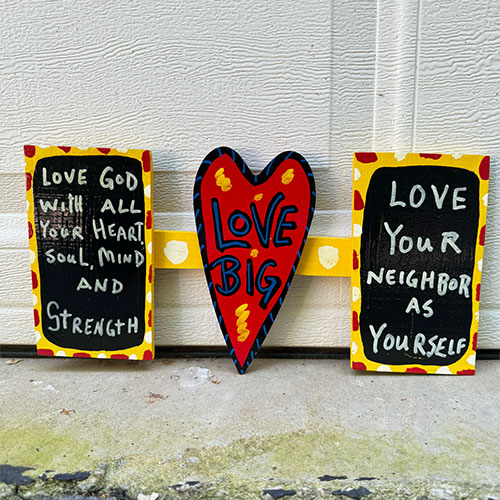 LOVE GOD
WITH ALL
YOUR HEART,
SOUL, MIND
AND
STRENGTH
LOVE
BIG
LOVE
YOUR
NEIGHBOR
AS
YOURSELF